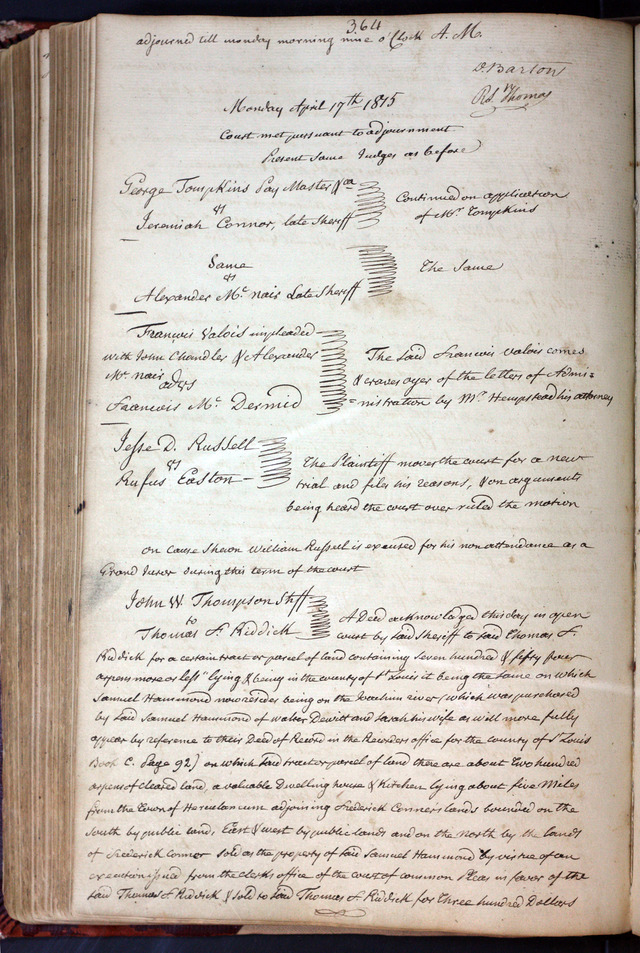 364
adjourned till monday morning nine o'Clock A.M.
D. Barton
Rd. Thomas
Monday April 17th 1815
Court met pursuant to adjournment
Present same Judges as before
George Tompkins Pay Master &ca
vs
Jeremiah Connor, late Sheriff
Continued on application
of Mr. Tompkins
Same
vs
Alexander Mc. nair Late Sheriff
The Same
Francois Valois impleaded
with John Chandler & Alexander
Mc. nair
ads
Francois Mc. Dermid
The said Francois Valois comes
& craves oyer of the letters of Admi=
=nistration by Mr. Hempstead his attorney
Jesse D. Russell
vs
Rufus Easton
The Plaintiff moves the court for a new
trial and files his reasons, & on arguments
being heard the court over ruled the motion
On cause shewn William Russell is excused for his non attendance as a
Grand Juror during this term of the court
John W Thompson Shff
to
Thomas F. Riddick
A Deed acknowledged this day in open
court by said Sheriff to said Thomas F.
Riddick for a certain tract or parcel of land containing seven hundred & fifty four
arpens more or less "lying & being in the county of St. Louis it being the same on which
Samuel Hammond now resides being on the Joachim river (which was purchased
by said Samuel Hammond of Walter Dewitt and Sarah his wife as will more fully
appear by reference to their Deed of Record in the Recorders office for the county of St Louis
Book C. Page 92) on which said tract or parcel of land there are about Two hundred
arpens of cleared land, a valuable Dwelling house & Kitchen lying about five Miles
from the Town of Herculaneum adjoining Frederick Conner's lands bounded on the
South by public land, East & west by public lands and on the North by the lands
of Frederick Connor sold as the property of said Samuel Hammond by virtue of an
execution issued from the clerks office of the court of common Pleas in favor of the
said Thomas F. Riddick & sold to said Thomas F. Riddick for Three hundred Dollars